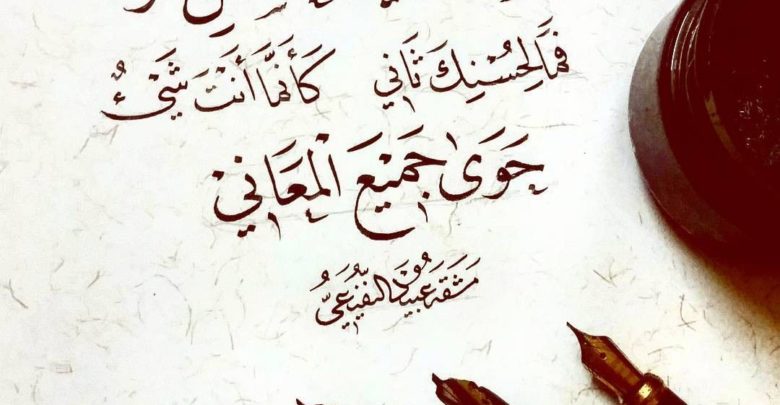 فَمَا لِحُسْنِكَ ثَانِي كَأَنَّمَا أَنْتَ شَيْءٌ
حَوَىٰ جَمِيْعَ الْمَعَانِي
مشقه عبيد النفيعي